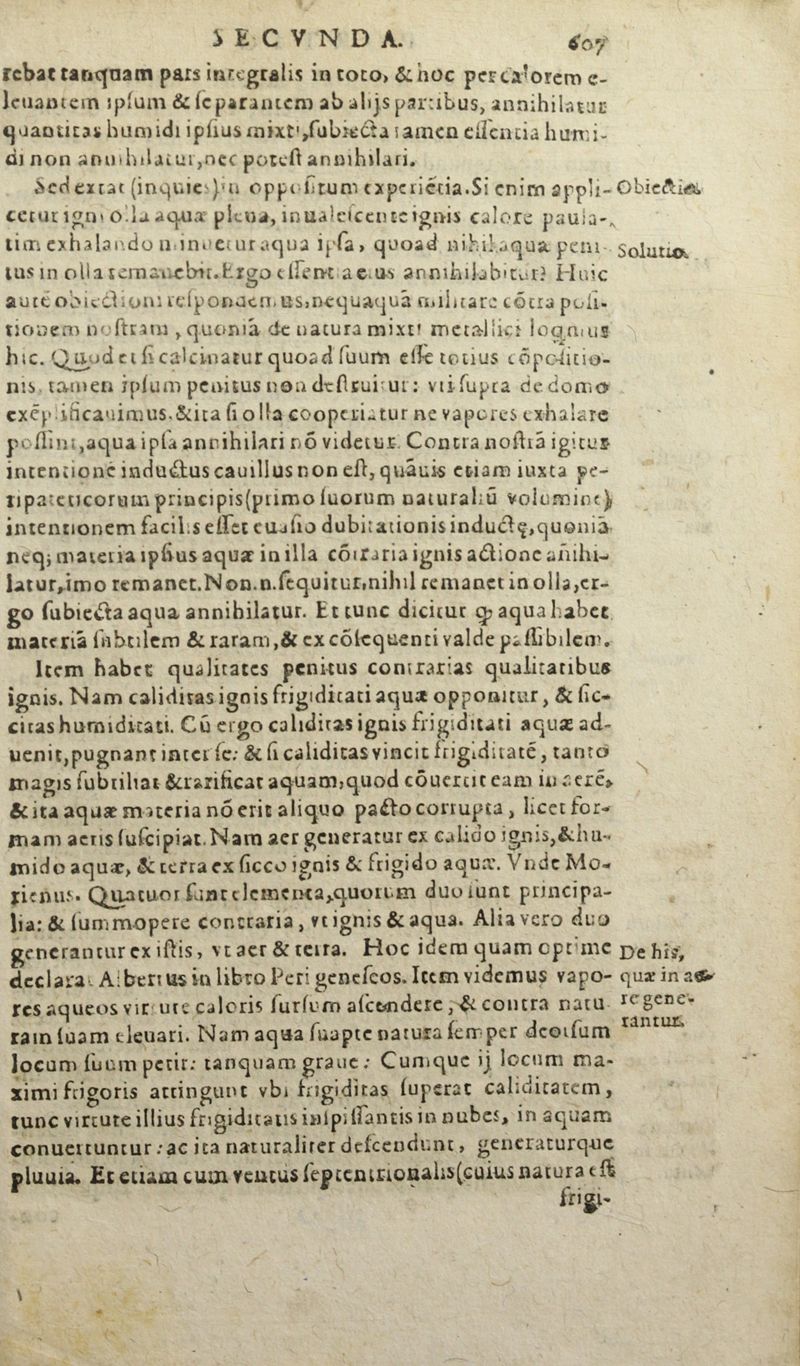 SECVNDA. 607
rebat tanquam pars integralis in toto, & hoc per calorem e-
leuantem ipsum & separantem ab alijs partibus, annihilatur
quantitas humidi ipsius mixti, subiecta tamen essentia humi-
di non annihilatur, nec potest annihilari.
Sed extat (inquies) in oppositum experiẽtia. Si enim appli- Obiectio.
cetur igni olla aquæ plena, inualescente ignis calore paula-
tim exhalando minuetur aqua ipsa, quoad nihil aquæ peni- Solutio.
tus in olla remanebit. Ergo essent aeius annihilabitur? Huic
autẽ obiectioni respondemus, nequaquã militare cõtra posi-
tionem nostram, quoniã de natura mixti metallici loqimus
hic. Quod etsi calcinatur quoad suum esse totius cõpositio-
nis, tamen ipsum penitus non destruitur: vti supra de domo
exẽplificauimus. & ita si olla cooperiatur ne vapores exhalare
possint, aqua ipsa annihilari nõ videtur. Contra nostrã igitur
intentionẽ inductus cauillus non est, quãuis etiam iuxta pe-
ripateticorum principis (primo suorum naturaliũ volumine)
intentionem facilis esset euasio dubitationis inductę, quoniã
neq; materia ipsius aquæ in illa cõtraria ignis actione añihi-
latur, imo remanet. Non. n. sequitur, nihil remanet in olla, er-
go subiecta aqua annihilatur. Et tunc dicitur ꝙ aqua habet
materiã subtilem & raram, & ex cõsequenti valde passibilem.
Item habet qualitates penitus contrarias qualitatibus
ignis. Nam caliditas ignis frigiditati aquæ opponitur, & sic-
citas humiditati. Cũ ergo caliditas ignis frigiditati aquæ ad-
uenit, pugnant inter se: & si caliditas vincit frigiditatẽ, tanto
magis subtiliat & rarificat aquam, quod cõuertit eam in aerẽ,
& ita aquæ materia nõ erit aliquo pacto corrupta, licet for-
mam aeris suscipiat. Nam aer generatur ex calido ignis, & hu-
mido aquæ, & terra ex sicco ignis & frigido aquæ. Vnde Mo-
rienus. Quatuor sunt elementa, quorum duo sunt principa-
lia: & summopere contraria, vt ignis & aqua. Alia vero duo
generantur ex istis, vt aer & terra. Hoc idem quam optime De his,
declarat Albertus in libro Peri geneseos. Item videmus vapo- quæ in ae-
res aqueos virtute caloris sursum ascendere, & contra natu- re gene-
ram suam eleuari. Nam aqua suapte natura semper deorsum rantur.
locum suum petit: tanquam graue: Cumque ij locum ma-
ximi frigoris attingunt vbi frigiditas superat caliditatem,
tunc virtute illius frigiditatis inspissantis in nubes, in aquam
conuertuntur: ac ita naturaliter descendunt, generaturque
pluuia. Et etiam cum ventus septentrionalis (cuius natura est
frigi-